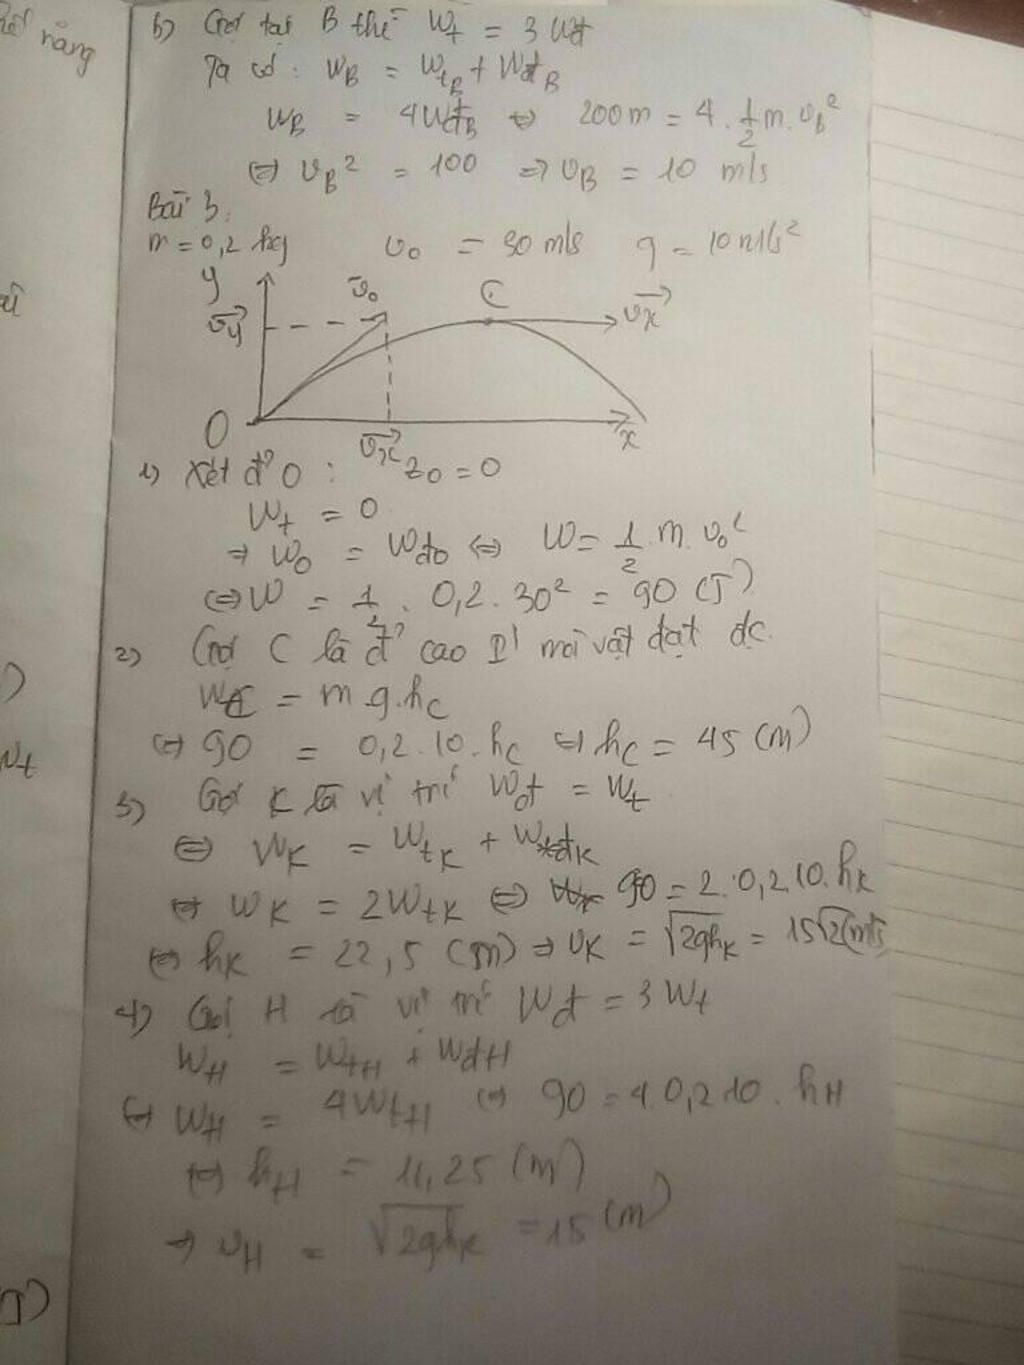 b) Gọi tại B thì Wt = 3 Wđ
Ta có : WB = WtB + WđB
WB = 4WđB ⇔ 200m = 4 . 1/2 m. vB²
⇔ vB² = 100 ⇒ vB = 10 m/s
Bài 3:
m = 0,2 kg v0 = 30 m/s g = 10 m/s²
y v0 C vx
vy
O vx x
1) Xét đ' O : z0 = 0
Wt = 0
⇒ W0 = Wđ0 ⇔ W = 1/2 . m. v0²
⇔ W = 1/2 . 0,2. 30² = 90 (J)
2) Gọi C là đ' cao I' mà vật đạt đc.
WC = m g.hC
⇔ 90 = 0,2.10.hC ⇔ hC = 45 (m)
3) Gọi K là vị trí Wđ = Wt
⇔ WK = WtK + WđK
⇔ WK = 2WtK ⇔ 90 = 2.0,2.10.hK
⇔ hK = 22,5 (m) ⇒ vK = √2ghK = 15√2 (m/s)
4) Gọi H là vị trí Wđ = 3Wt
WH = WtH + WđH
⇔ WH = 4WtH ⇔ 90 = 4.0,2.10.hH
⇔ hH = 11,25 (m)
⇒ vH = √2ghK = 15 (m)